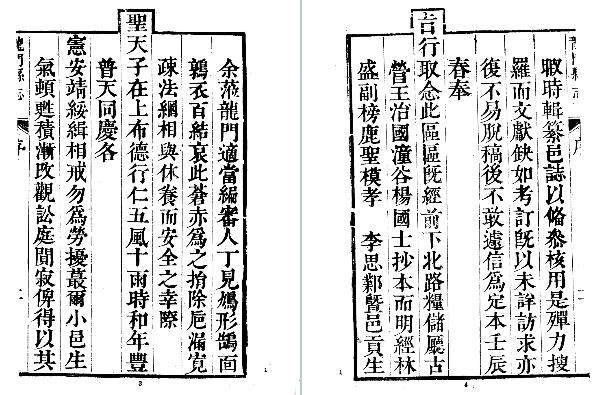 余蒞龍門適當編審人丁見鳩形鵠面
鶉衣百結哀此蒼赤為之捐除卮漏寬
疎法網相與休養而安全之幸際
聖天子在上布德行仁五風十雨時和年豐
普天同慶各
憲安靖綏緝相戒勿為勞擾蕞爾小邑生
氣頓甦積漸改觀訟庭閴寂俾得以其
龍門縣志 序
3
龍門縣志 序
暇時輯纂邑誌以俻叅核用是殫力搜
羅而文獻缺如考訂旣以未詳訪求亦
復不易脫稿後不敢遽信為定本壬辰
春奉
㫖行取念此區區旣經前下北路糧儲廳古
營王治國潼谷楊國士抄本而明經林
盛副榜鹿聖模孝 李思鄴曁邑貢生
4